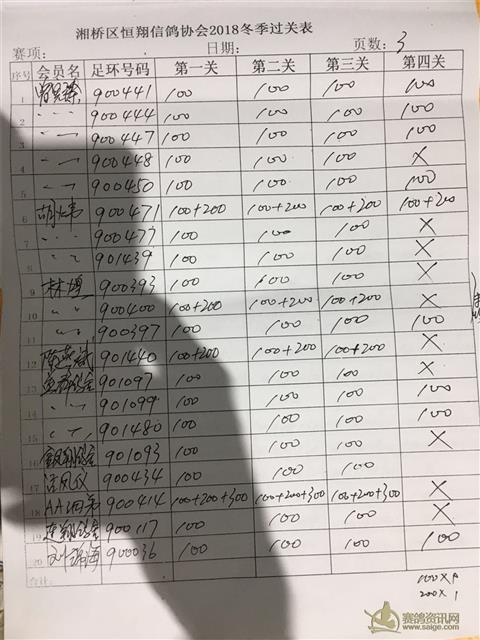 湘桥区恒翔信鸽协会2018冬季过关表
赛项: 日期: 页数: 3
序号 会员名 足环号码 第一关 第二关 第三关 第四关
1 900441 100 100 100 100
2 〃 900444 100 100 100 100
3 〃 900447 100 100 100 100
4 〃 900448 100 100 100 ×
5 〃 900450 100 100 100 100
6 胡炜 900471 100+200 100+200 100+200 100+200
7 〃 900477 100 100 100 ×
8 〃 901439 100 100 100 ×
9 900393 100 100 100 ×
10 〃 900400 100+200 100+200 100+200 ×
11 〃 900397 100 100 100 ×
12 901440 100+200 100+200 100+200 ×
13 901097 100 100 100 ×
14 〃 901099 100 100 100 100
15 〃 901480 100 100 100 100
16 901093 100 100 100 ×
17 900434 100 100 100
18 900414 100+200+300 100+200+300 100+200+300 ×
19 900117 100 100 100 ×
20 900036 100 100 100 100
合计:
200×1
赛鸽资讯网
www.saige.com